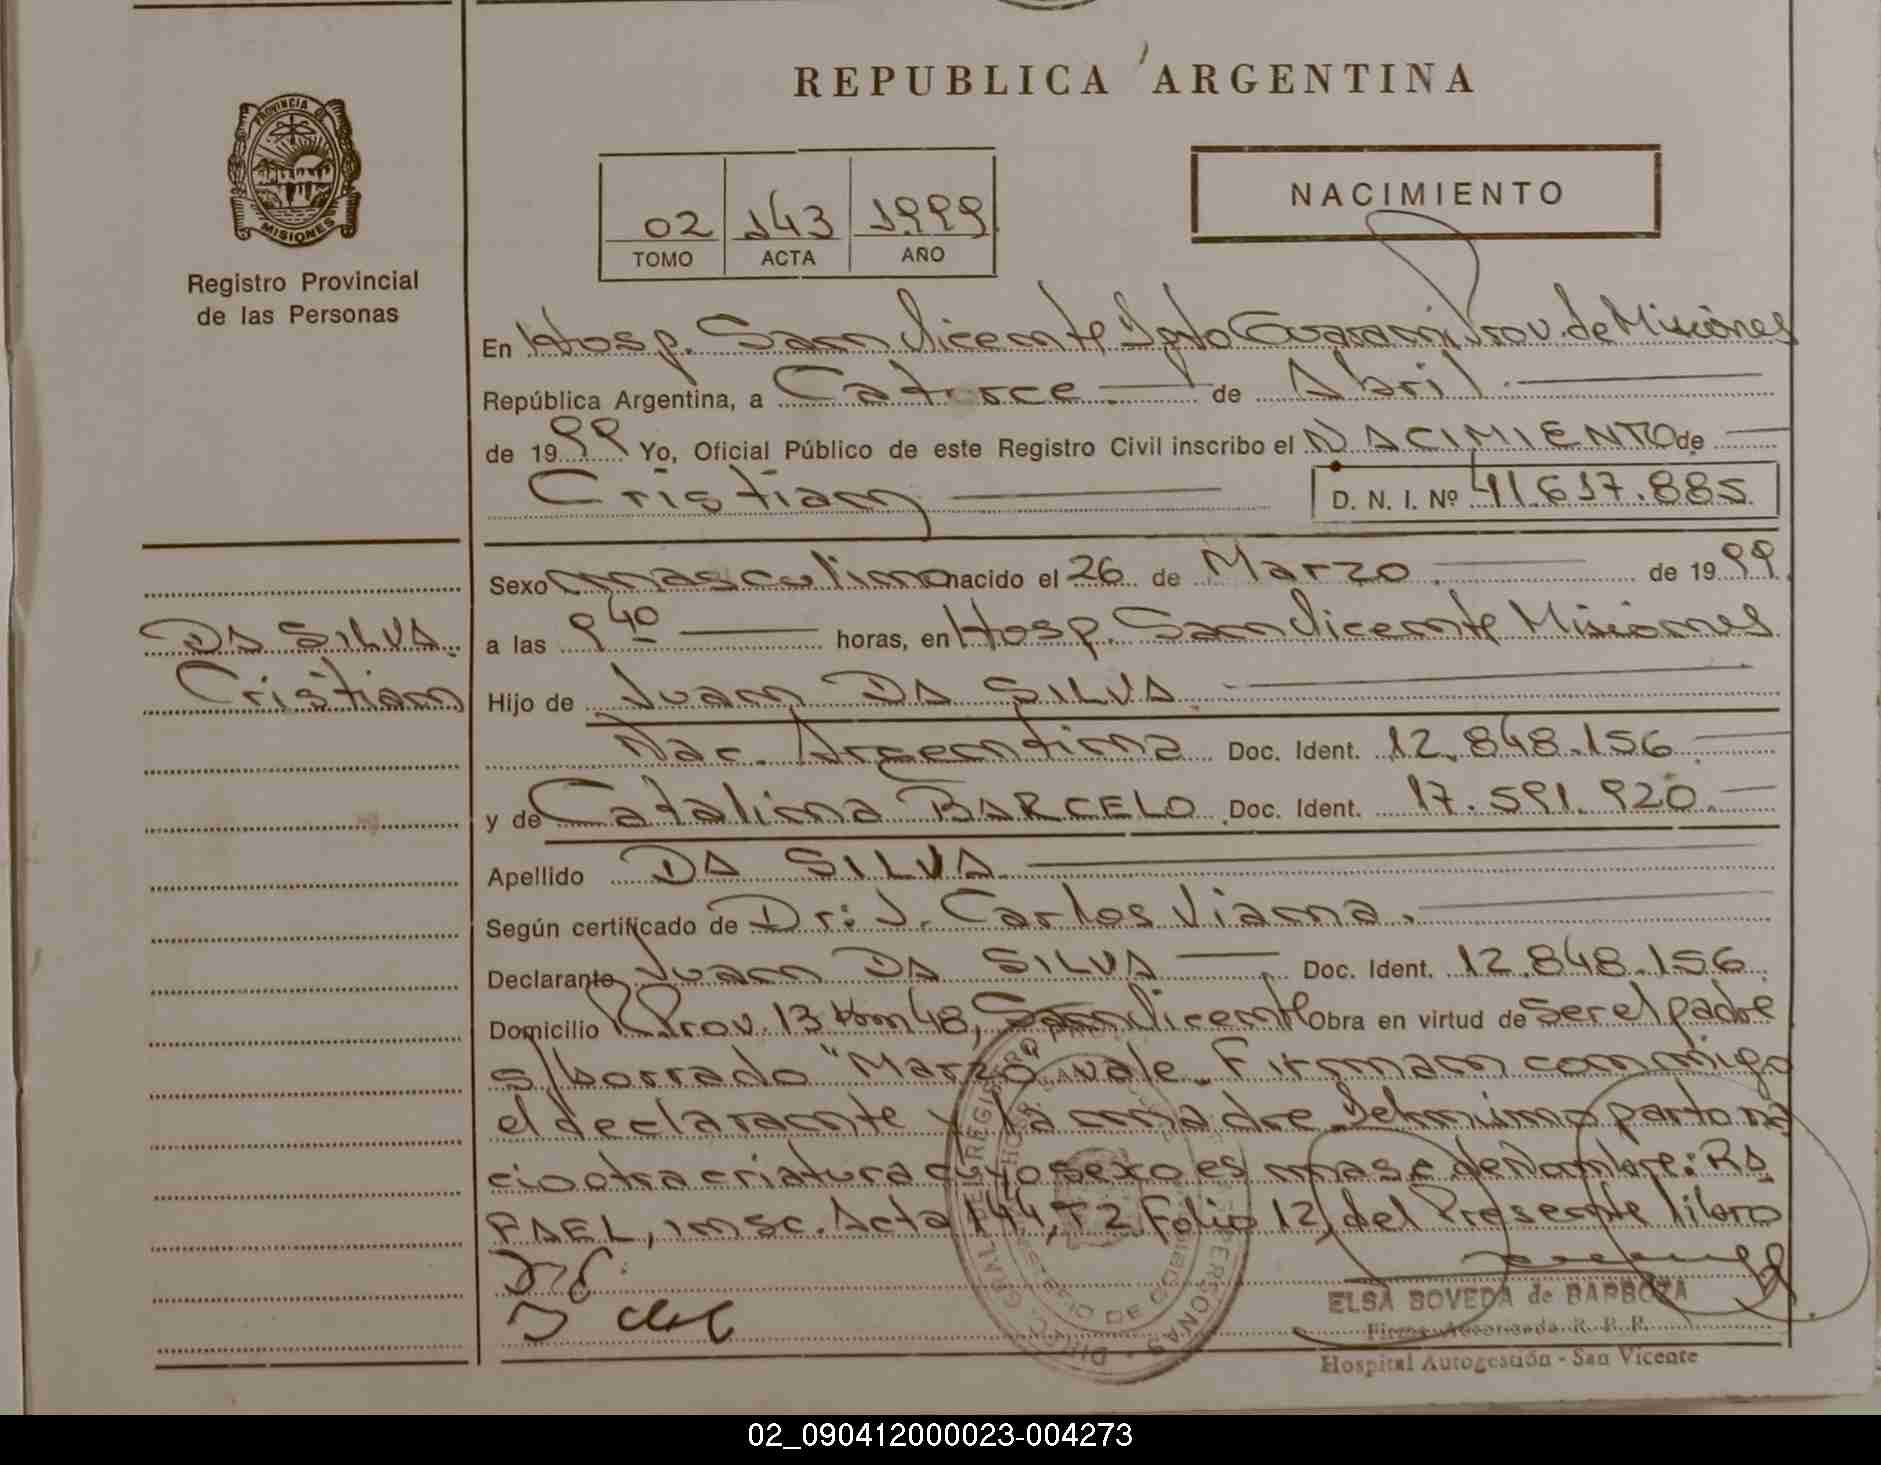 REPUBLICA ARGENTINA
PROVINCIA DE
MISIONES
Registro Provincial
de las Personas
02 143 1999
TOMO ACTA AÑO
NACIMIENTO
En Hosp. San Vicente Dpto Guaraní Prov. de Misiones
República Argentina, a Catorce de Abril
de 1999 Yo, Oficial Público de este Registro Civil inscribo el NACIMIENTO de
Cristian D. N. I. Nº 41.617.885
Sexo masculino nacido el 26 de Marzo de 1999
DA SILVA.
Cristian
a las 9 40 horas, en Hosp. San Vicente Misiones
Hijo de Juan DA SILVA
Nac. Argentina Doc. Ident. 12.848.156
y de Catalina BARCELO Doc. Ident. 17.591.920
Apellido DA SILVA
Según certificado de Dr: J. Carlos Vianna.
Declarante Juan DA SILVA Doc. Ident. 12.848.156
Domicilio R. Prov. 13 Km 48, San Vicente Obra en virtud de ser el padre
s/borrado "Marzo" vale. Firman conmigo
el declarante y la madre. Del mismo parto na
cio otra criatura cuyo sexo es masc. de Nombre: RA
FAEL, insc. Acta 144, T 2 Folio 12, del Presente libro
ELSA BOVEDA de BARBOZA
Firma Autorizada R. P. P.
Hospital Autogestión - San Vicente
02_090412000023-004273